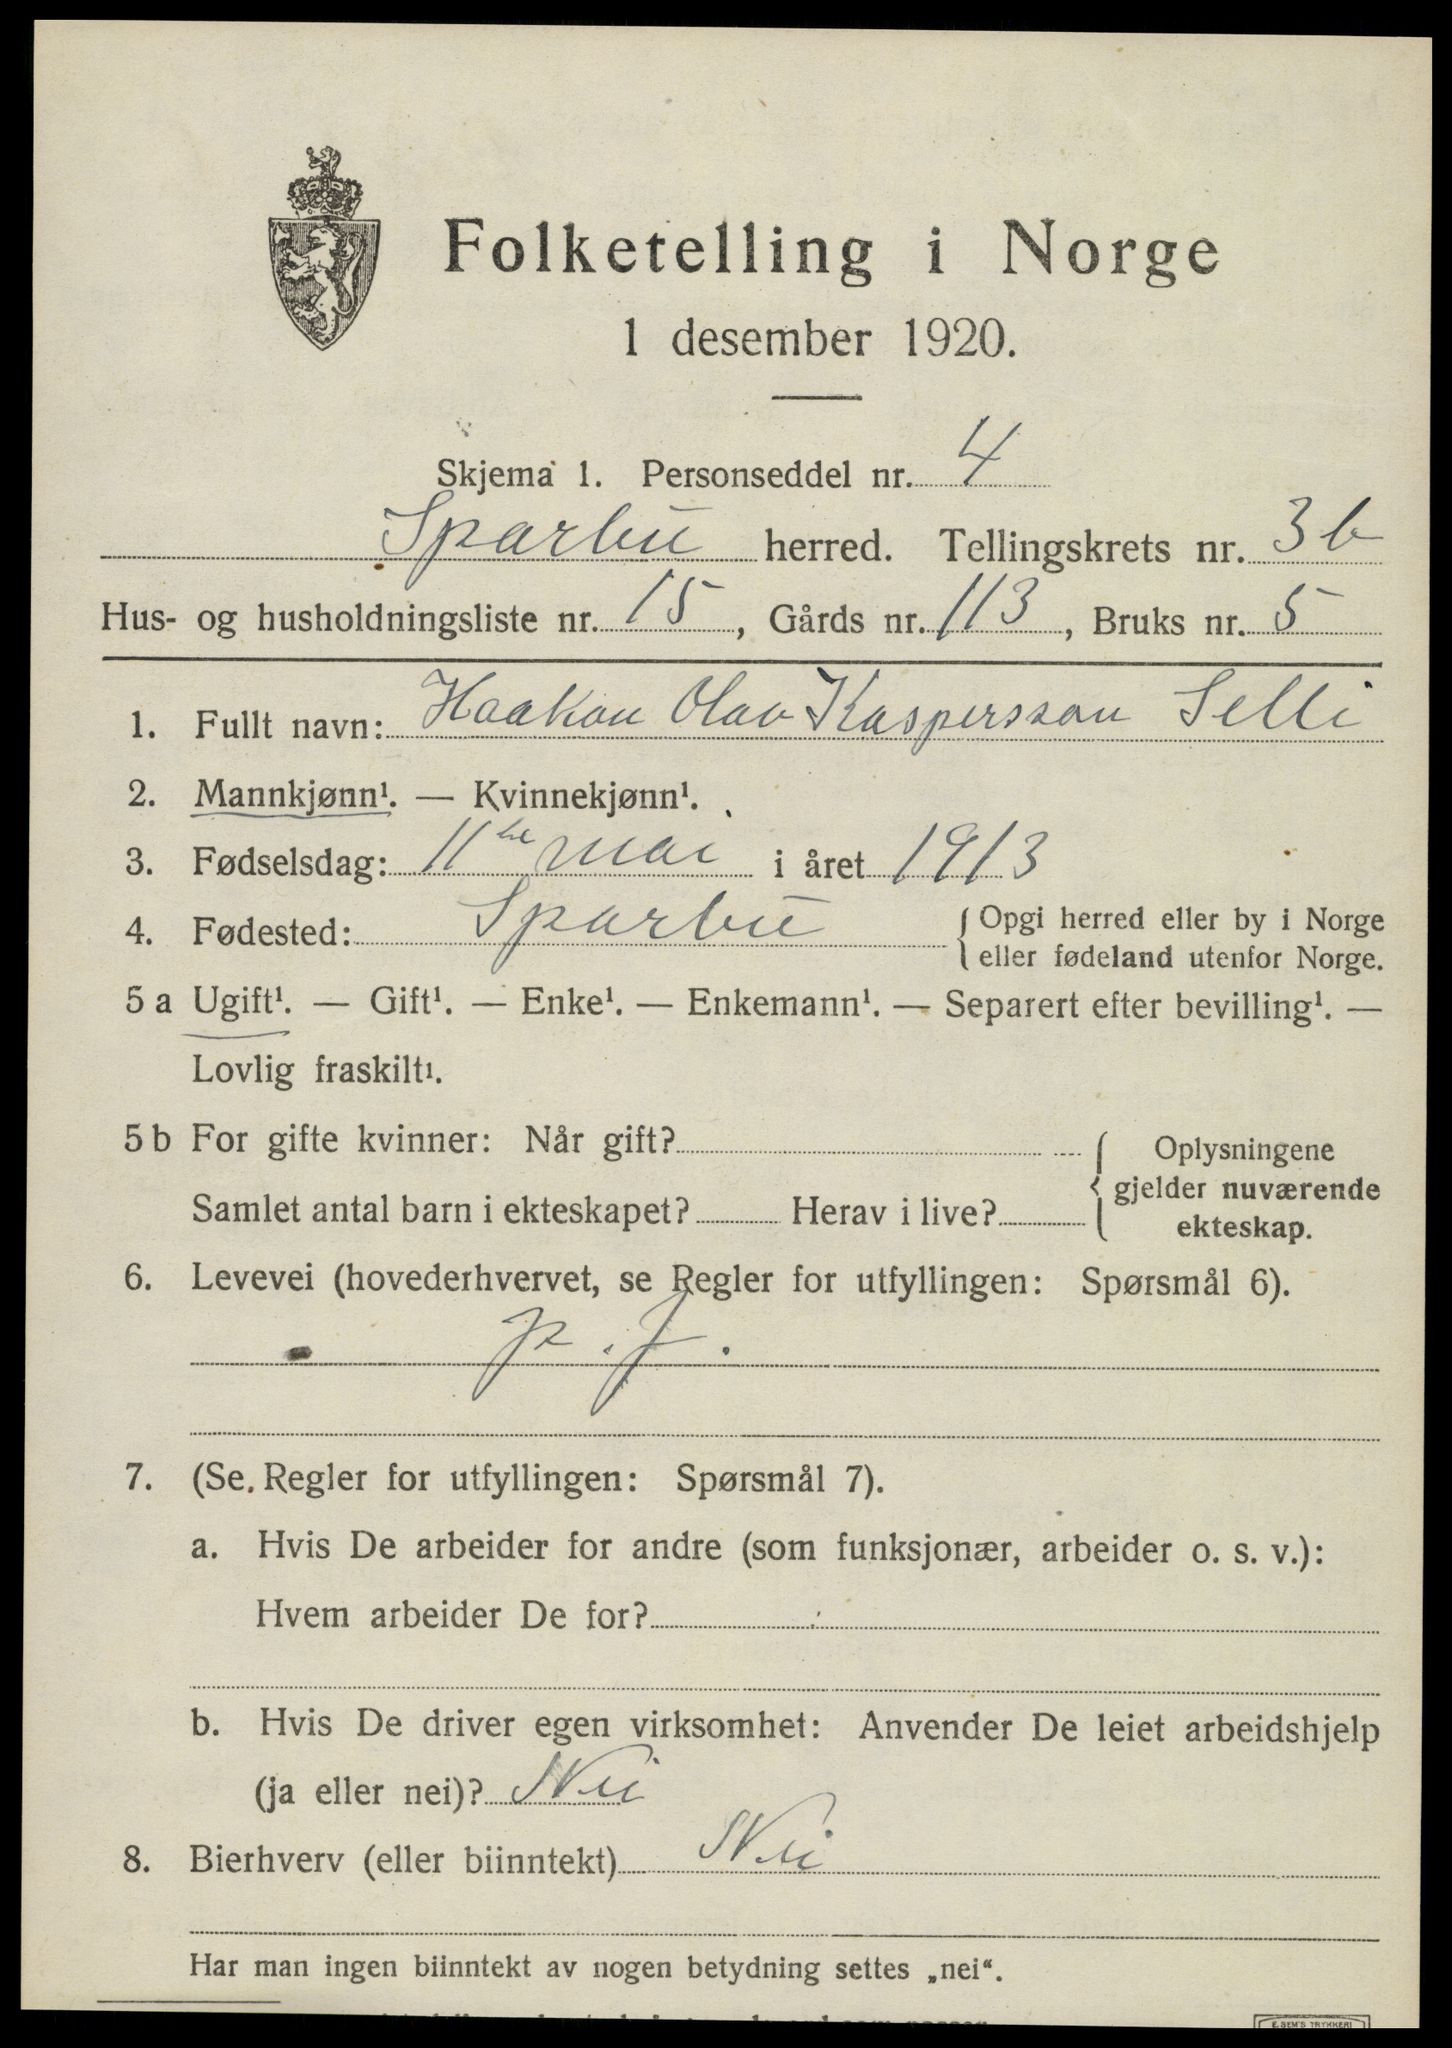 Folketelling i Norge
1 desember 1920.
Skjema 1. Personseddel nr. 4
Sparbu herred. Tellingskrets nr. 3b
Hus- og husholdningsliste nr. 15, Gårds nr. 113, Bruks nr. 5
1. Fullt navn: Haakon Olav Kaspersson Selli
2. Mannkjønn¹. — Kvinnekjønn¹.
3. Fødselsdag: 11te mai i året 1913
4. Fødested: Sparbu { Opgi herred eller by i Norge
eller fødeland utenfor Norge.
5 a Ugift¹. — Gift¹. — Enke¹. — Enkemann¹. — Separert efter bevilling¹. —
Lovlig fraskilt¹.
5 b For gifte kvinner: Når gift? { Oplysningene
gjelder nuværende
Samlet antal barn i ekteskapet? Herav i live?
ekteskap.
6. Levevei (hovederhvervet, se Regler for utfyllingen: Spørsmål 6).
7. (Se Regler for utfyllingen: Spørsmål 7).
a. Hvis De arbeider for andre (som funksjonær, arbeider o. s. v.):
Hvem arbeider De for?
b. Hvis De driver egen virksomhet: Anvender De leiet arbeidshjelp
(ja eller nei)? Nei
8. Bierhverv (eller biinntekt) Nei
Har man ingen biinntekt av nogen betydning settes „nei“.
E. SEM'S TRYKKERI